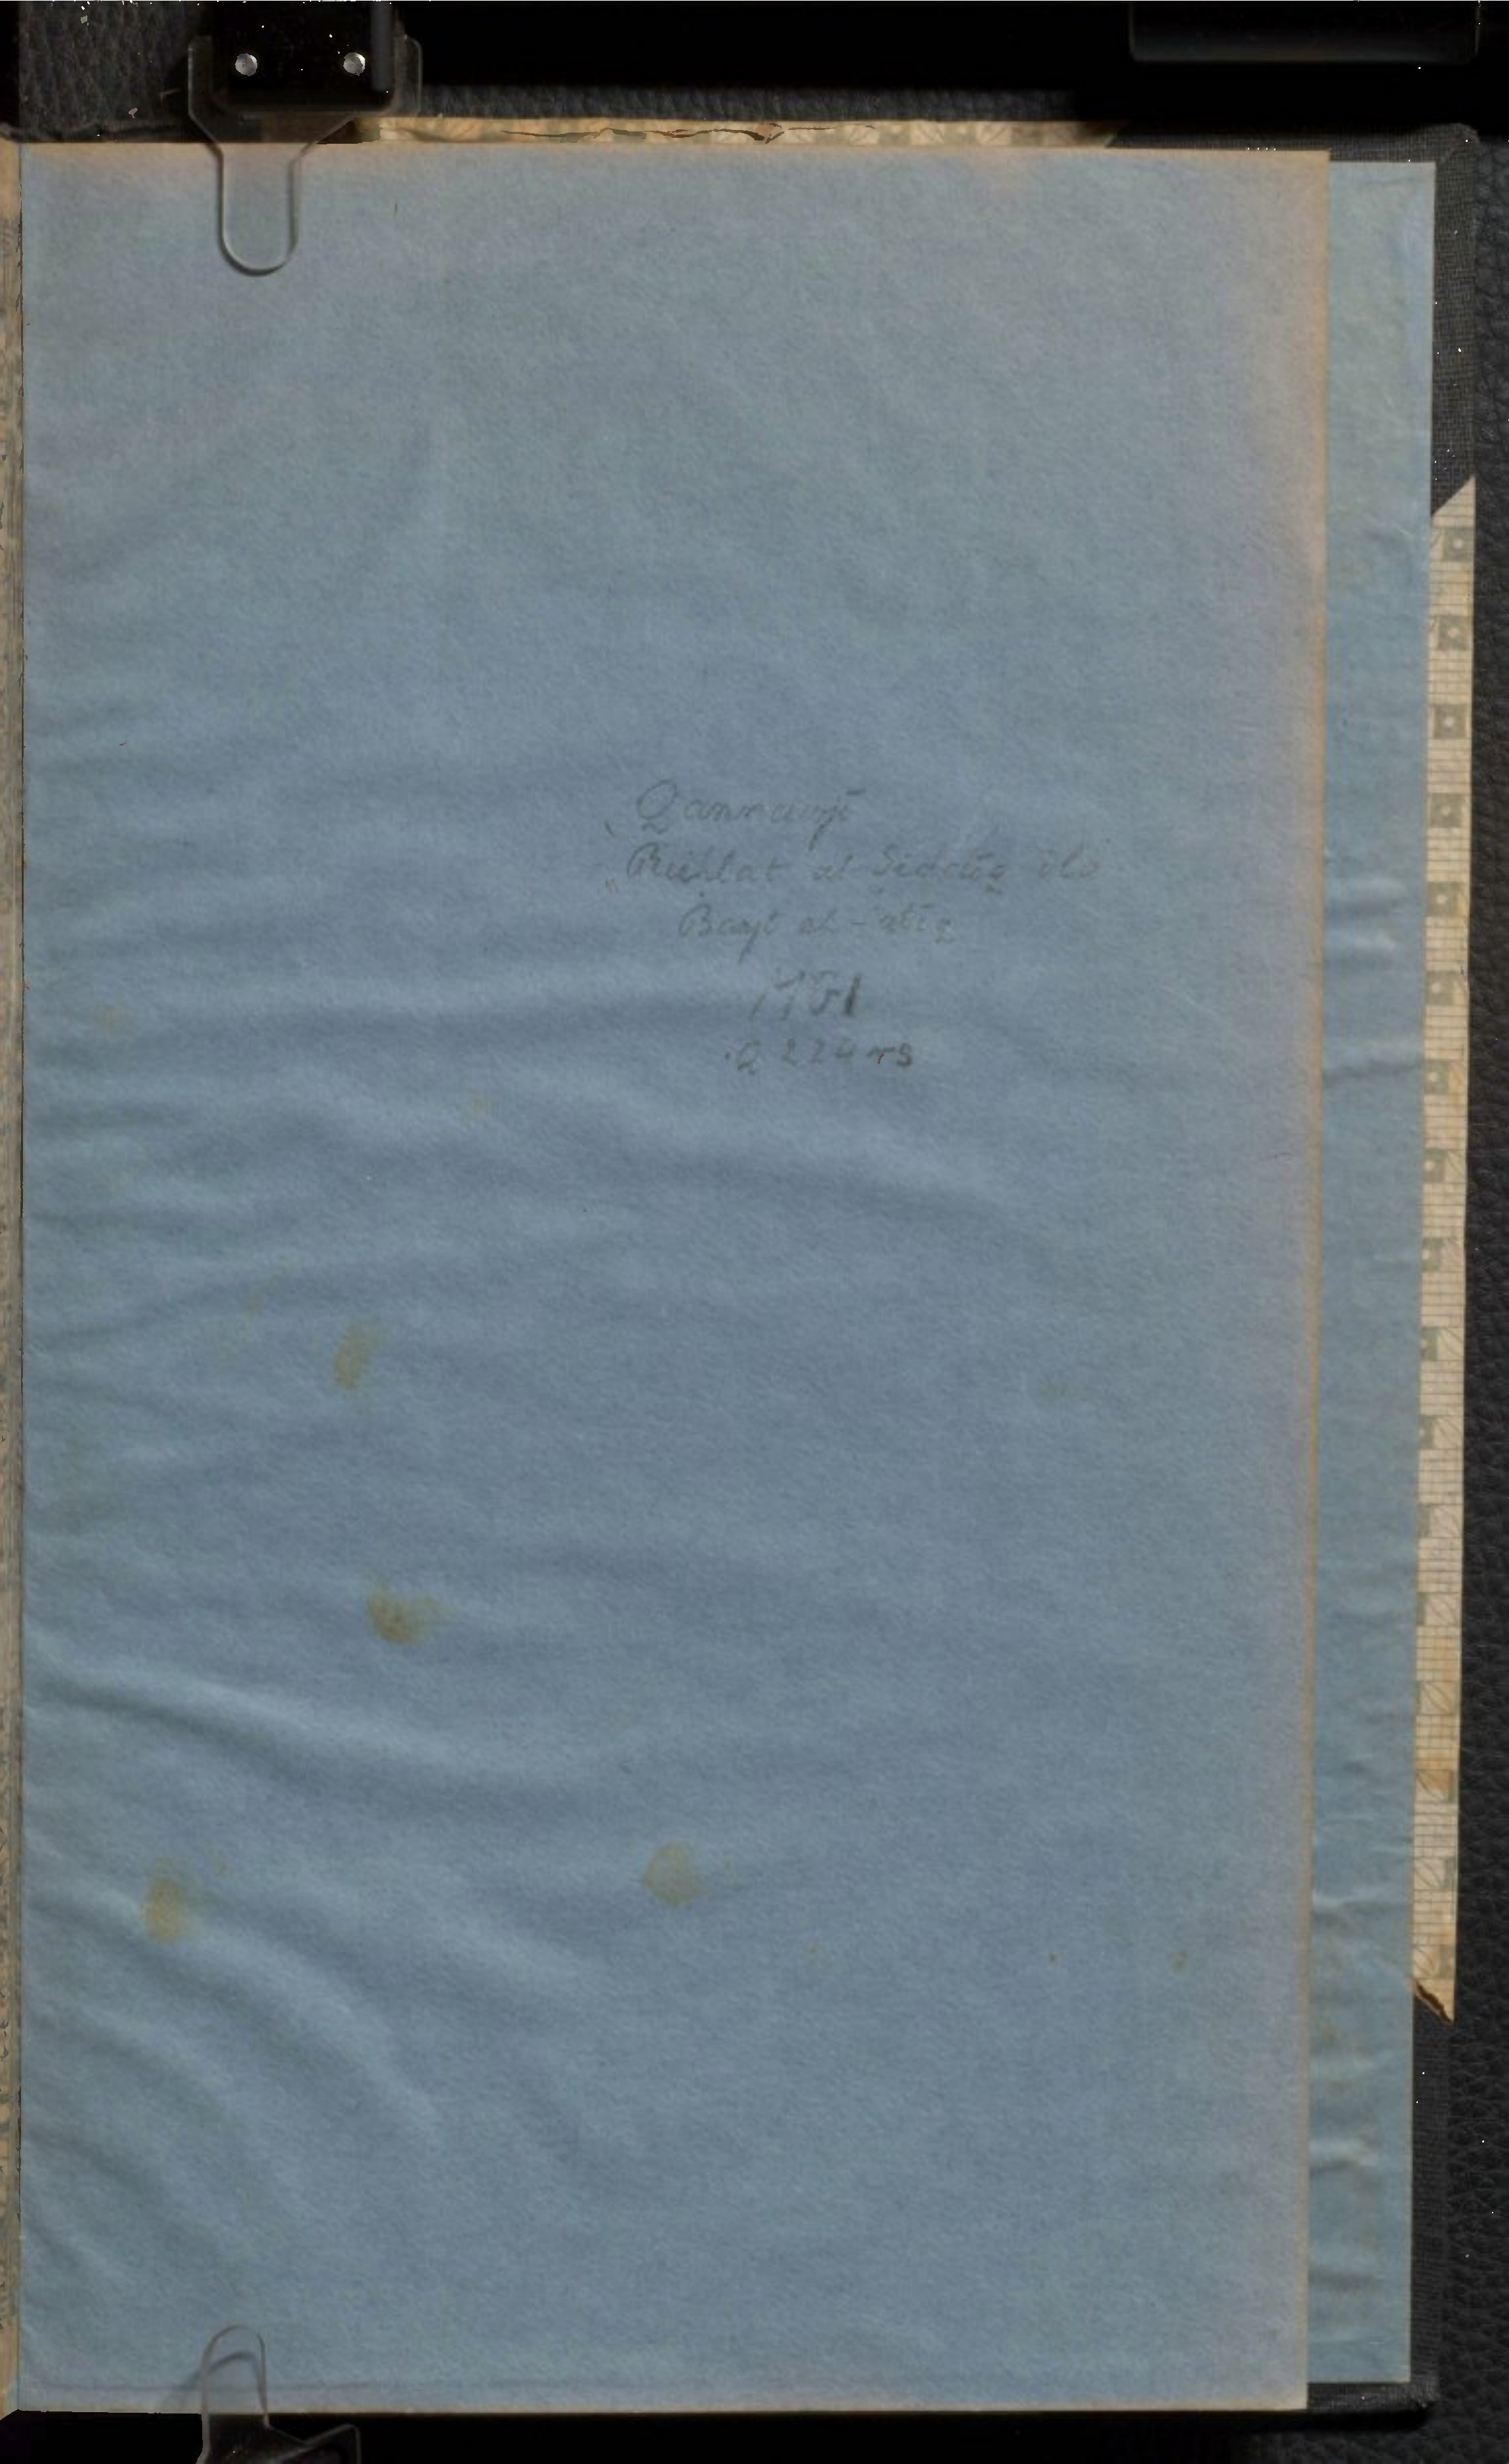 Qannawjī
Riḥlat al-Ṣiddīq ilá
Bayt al-ʻatīq
.Q 224 rs